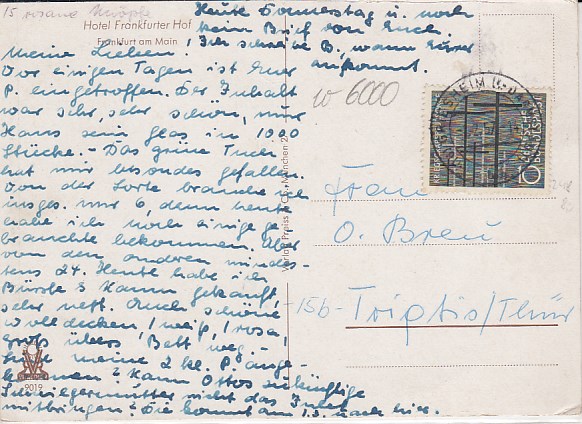 15 rosane Knöpfe
Hotel Frankfurter Hof
Frankfurt am Main
Heute Donnerstag u. noch
kein Brief von Euch.
Ich schreibe B., wann Eurer
ankommt.
Meine Lieben!
Vor einigen Tagen ist Euer
P. eingetroffen. Der Inhalt
war sehr, sehr schön, nur
Hans sein Glas in 1000
Stücke. - Das grüne Tuch
hat mir besondes gefallen.
Von der Sorte brauche ich
insges. nur 6, denn heute
habe ich noch einige ge-
brauchte bekommen. Aber
von den anderen mindes-
tens 24. Heute habe ich
Bürste & Kamm gekauft,
sehr nett. Auch schöne
Wolldecken, weiß, rosa,
groß übers Bett weg -
Sind meine 2 kl. P. ange-
kommen? Kann Ottos zukünftige
Schwiegermutter nicht das
mitbringen? Die kommt am 1.3. nach hier.
w 6000
10
DEUTSCHE BUNDESPOST
Verlag Preiss & Co. - München 2
Frau
O. Breu
-15b- Triptis/Thür
9019